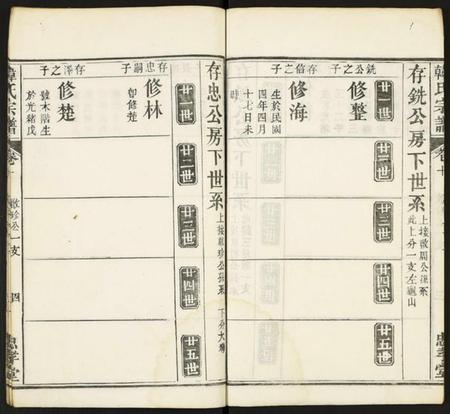 韓氏宗譜
卷十
忠孝堂
存銑公房下世系
上接敬周公孫系
此上分一支左龍山
廿一世
廿二世
廿三世
廿四世
廿五世
銑公之子
修整
存信之子
修海
生於民國
四年四月
十七日未
時
存忠公房下世系
廿一世
廿二世
廿三世
廿四世
廿五世
存忠嗣子
修林
卽修楚
存澤之子
修楚
號木階生
於光緒戊
韓氏宗譜
卷十
一支
四
忠孝堂